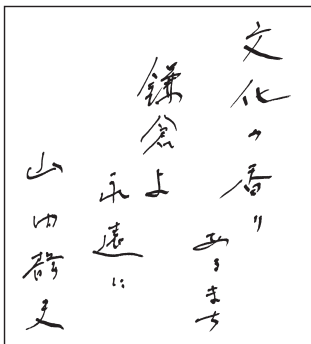 文化の香り
あるまち
鎌倉よ
永遠に
山内静夫